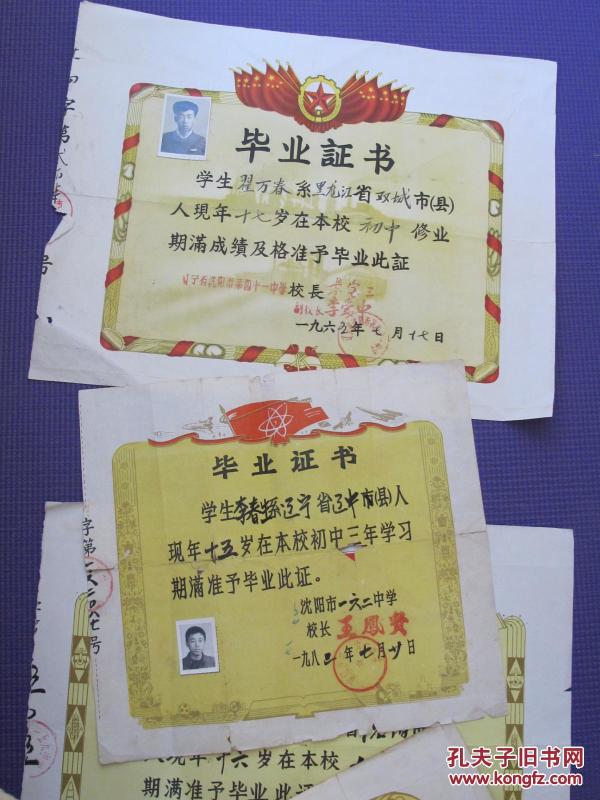 毕业証书
学生翟万春系黑龙江省双城市(县)
人現年十七岁在本校初中修业
期滿成績及格准予毕业此証
辽宁省沈阳市第四十一中学校長
副校长
一九六五年七月十七日
毕业证书
学生李春 系辽宁省辽中市(县)人
现年十五岁在本校初中三年学习
期满准予毕业此证。
沈阳市一六二中学
校长王凤贤
一九八 年七月 日
字第 号
人现年十六岁在本校
期满准予毕业此证
孔夫子旧书网
www.kongfz.com